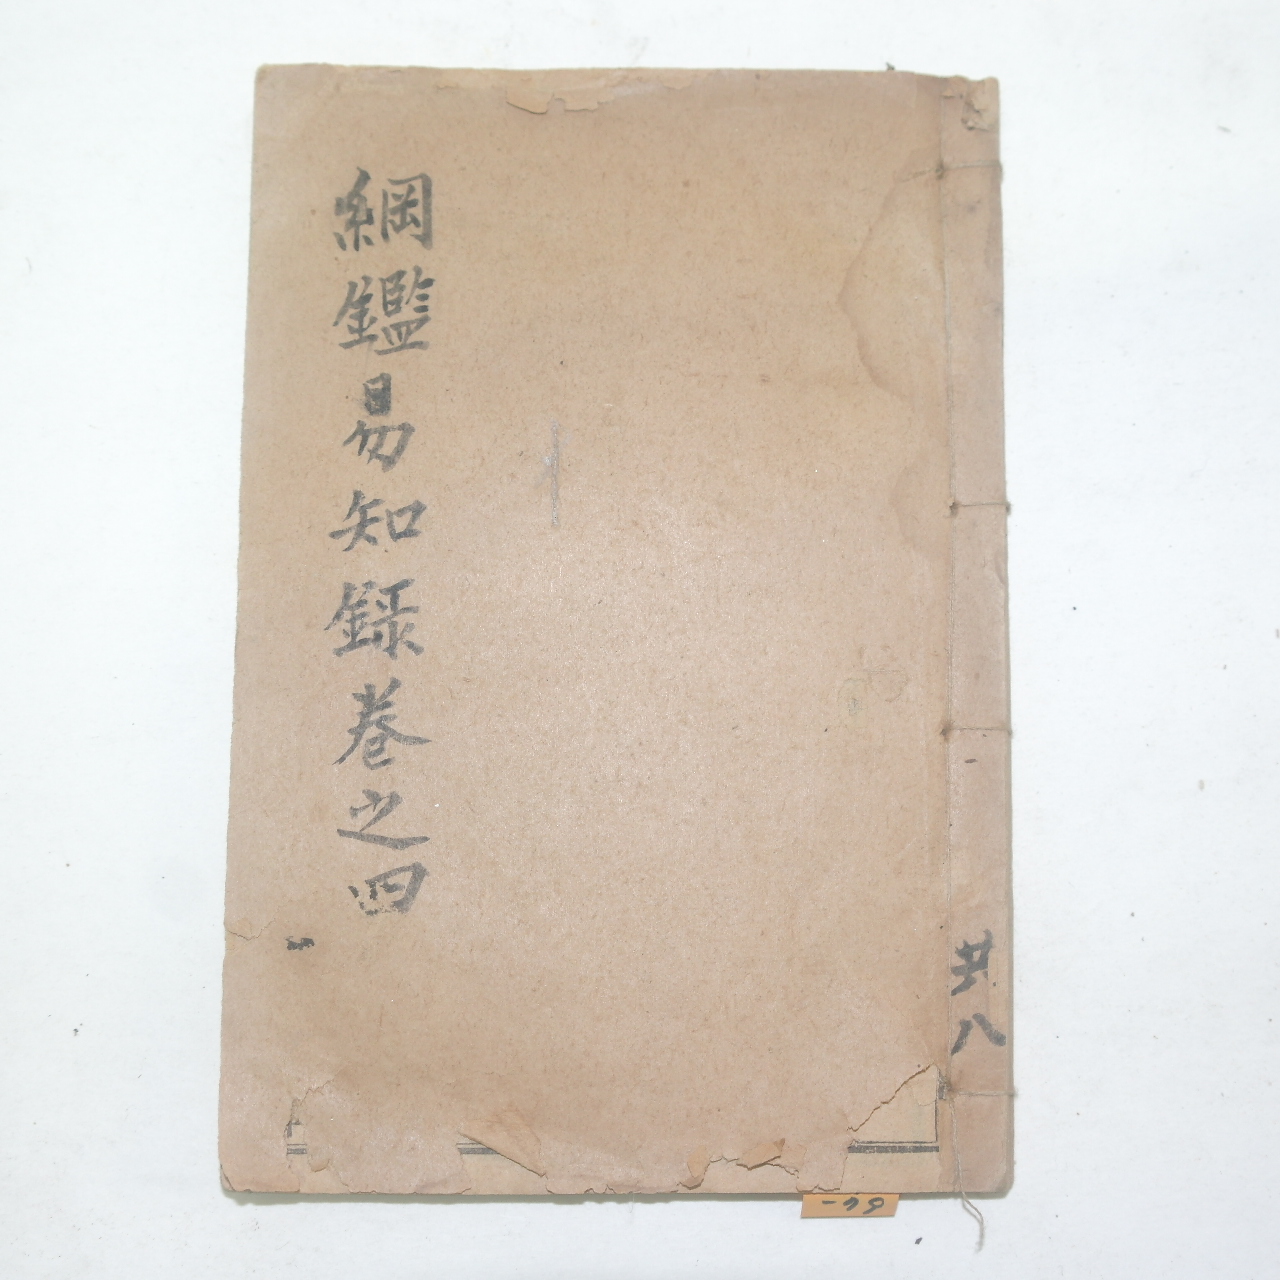 綱鑑易知録卷之四
共八